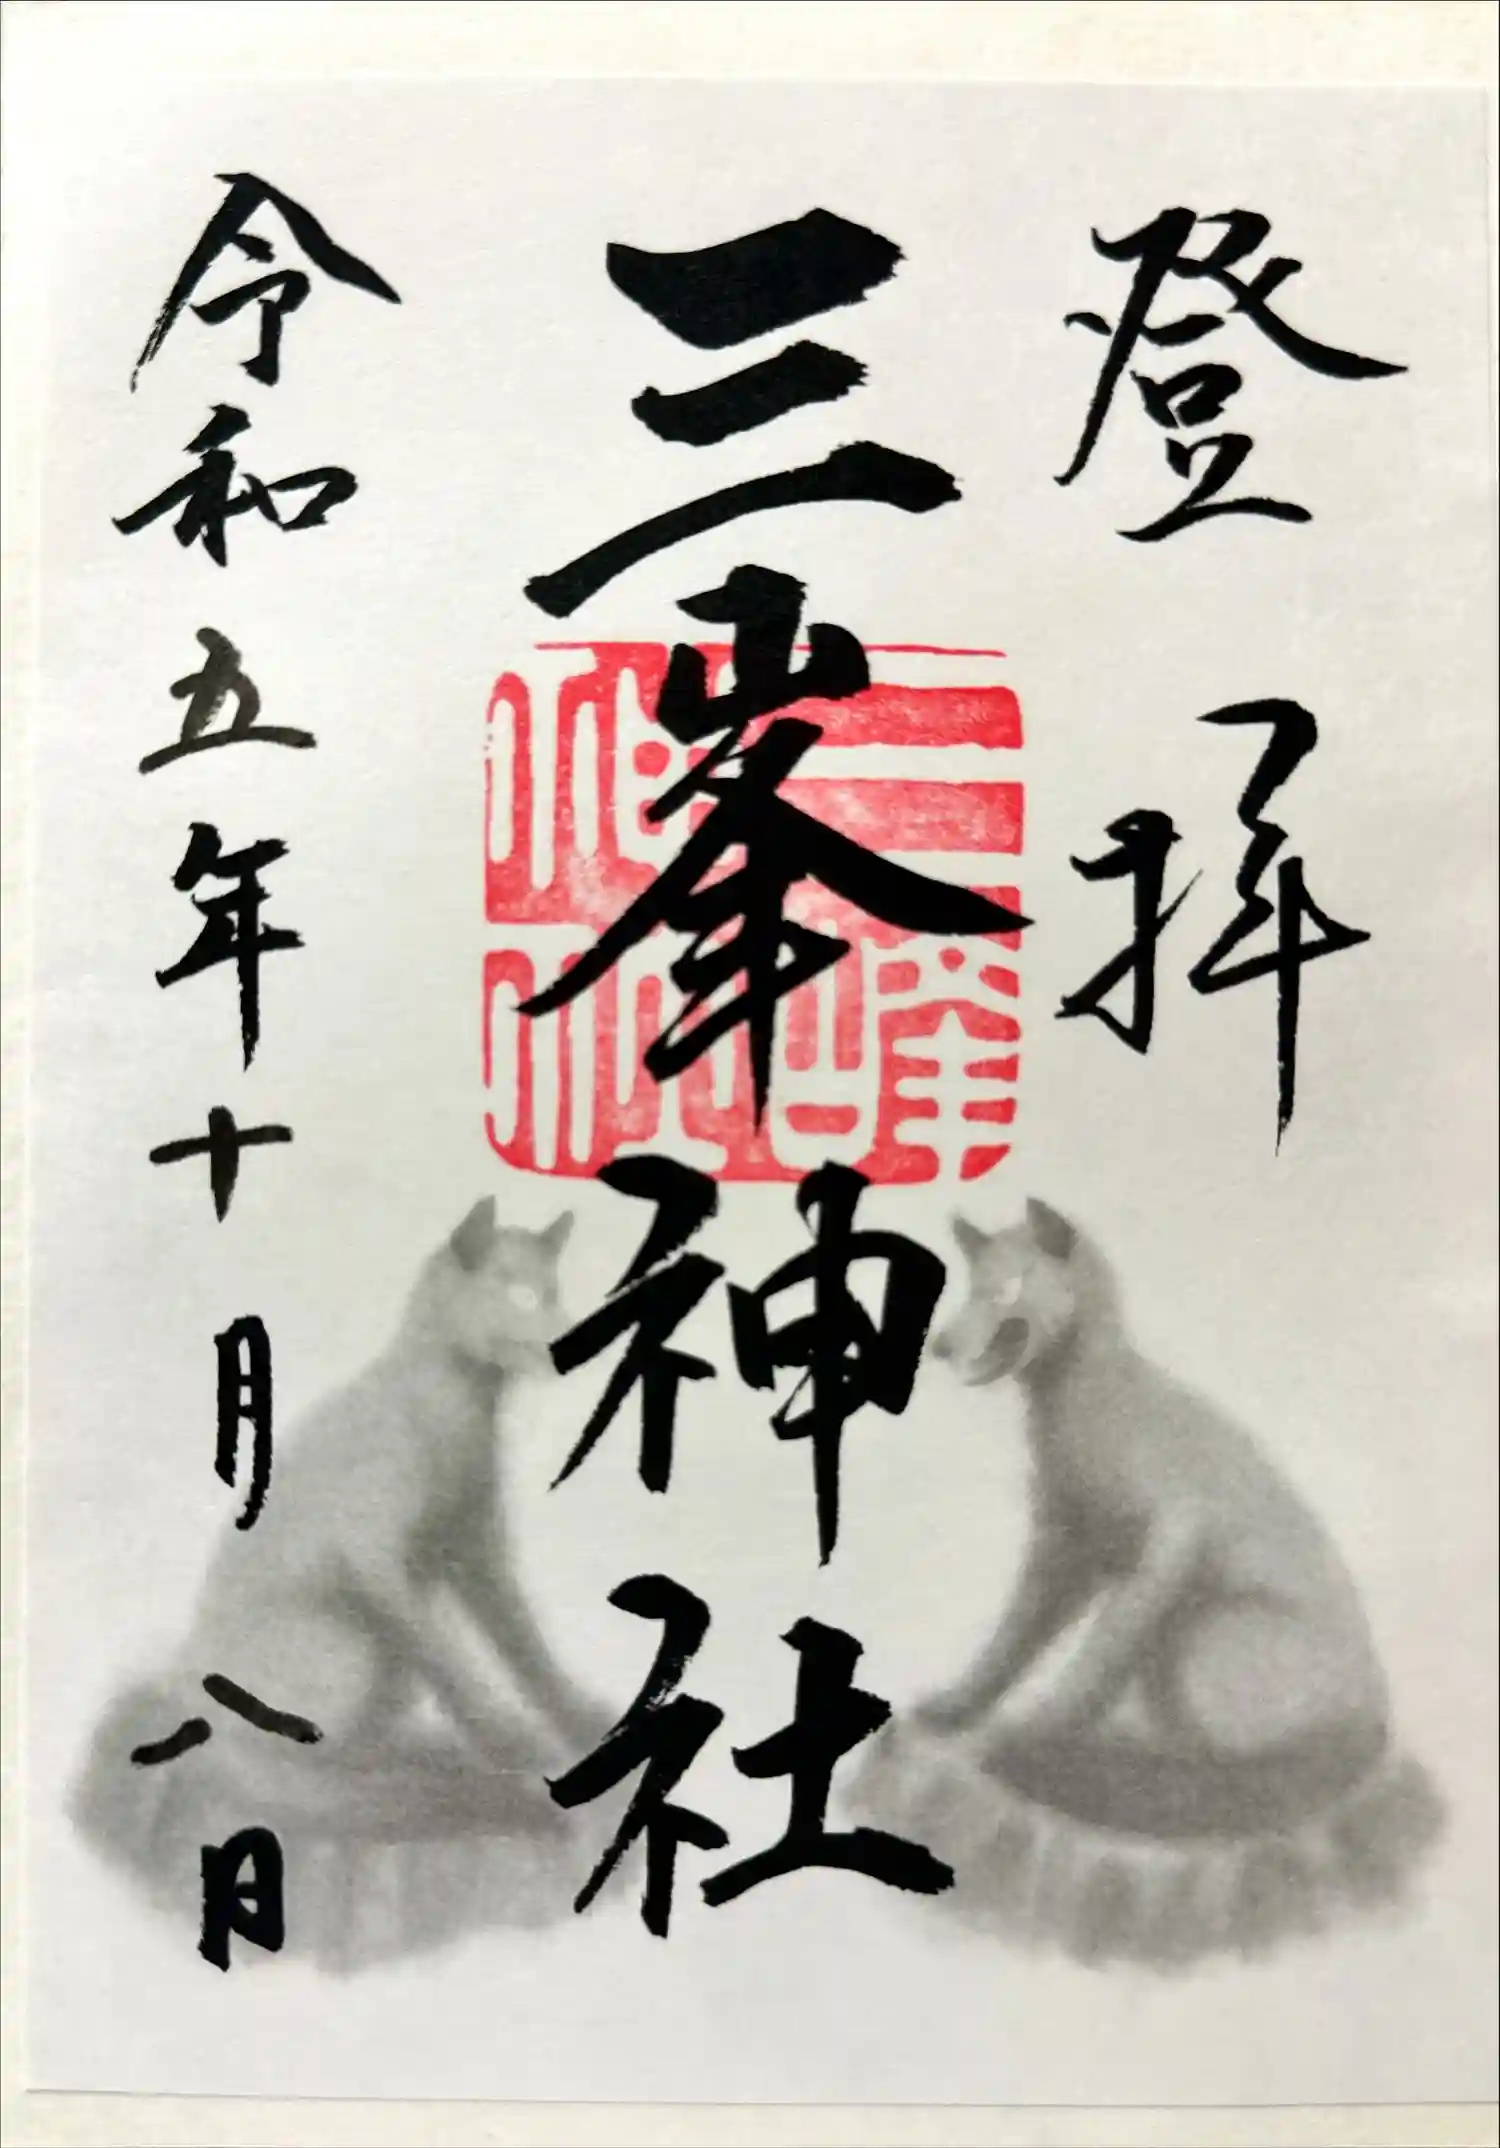 登拝
三峯神社
三峰神社
令和五年十月八日